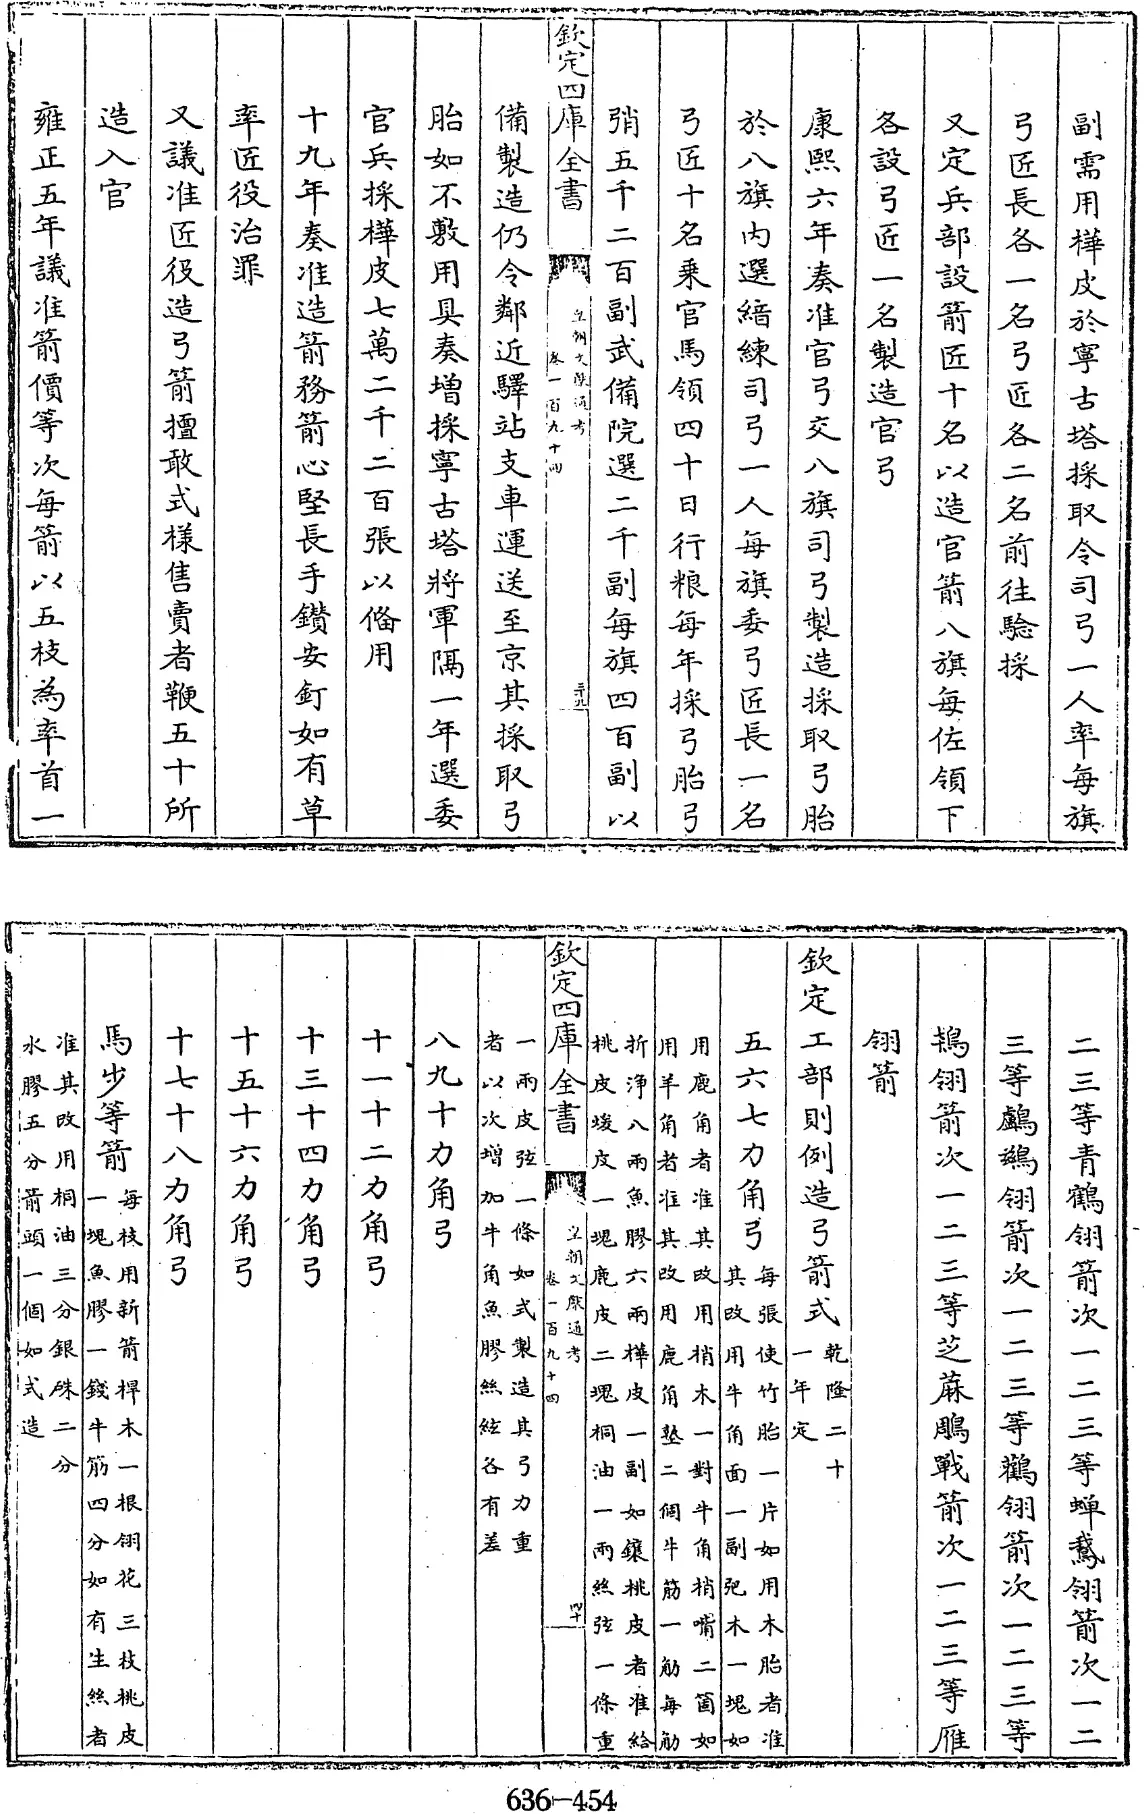 副需用樺皮於寧古塔採取令司弓一人率每旗
弓匠長各一名弓匠各二名前往驗採
又定兵部設箭匠十名以造官箭八旗每佐領下
各設弓匠一名製造官弓
康熙六年奏准官弓交八旗司弓製造採取弓胎
於八旗內選諳練司弓一人每旗委弓匠長一名
弓匠十名乘官馬領四十日行粮每年採弓胎弓
弰五千二百副武備院選二千副每旗四百副以
欽定四庫全書
皇朝文獻通考
卷一百九十四
三十九
備製造仍令鄰近驛站支車運送至京其採取弓
胎如不敷用具奏增採寧古塔將軍隔一年選委
官兵採樺皮七萬二千二百張以俻用
十九年奏准造箭務箭心堅長手鑚安釘如有草
率匠役治罪
又議准匠役造弓箭擅敢式樣售賣者鞭五十所
造入官
雍正五年議准箭價等次每箭以五枝為率首一
二三等青鶴翎箭次一二三等蟬鵞翎箭次一二
三等鸕鷀翎箭次一二三等鸛翎箭次一二三等
鴇翎箭次一二三等芝蔴鵰戰箭次一二三等雁
翎箭
欽定工部則例造弓箭式
乾隆二十
一年定
五六七力角弓
每張使竹胎一片如用木胎者准
其改用牛角面一副弝木一塊如
用鹿角者准其改用梢木一對牛角梢嘴二箇如
用羊角者准其改用鹿角墊二個牛筋一觔每觔
折淨八兩魚膠六兩樺皮一副如鑲桃皮者准給
桃皮煖皮一塊鹿皮二塊桐油一兩絲弦一條重
欽定四庫全書
皇朝文獻通考
卷一百九十四
四十
一兩皮弦一條如式製造其弓力重
者以次增加牛角魚膠絲絃各有差
八九十力角弓
十一十二力角弓
十三十四力角弓
十五十六力角弓
十七十八力角弓
馬步等箭
每枝用新箭桿木一根翎花三枝桃皮
一塊魚膠一錢牛筋四分如有生絲者
准其改用桐油三分銀硃二分
水膠五分箭頭一個如式造
636-454